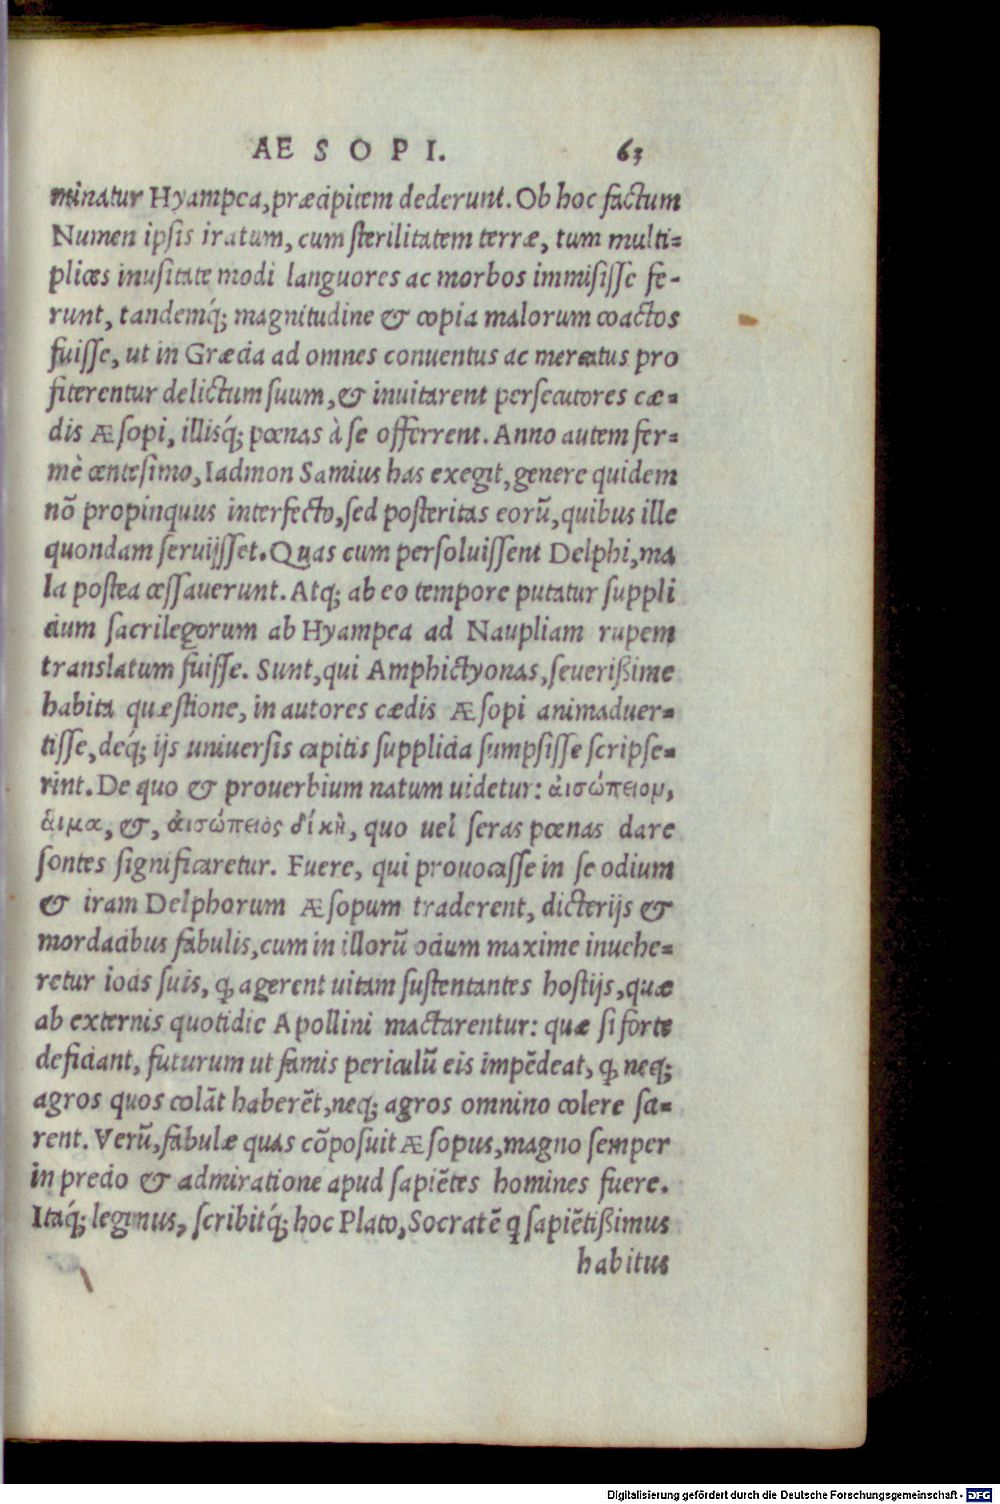 AE S O P I. 63
minatur Hyampea, præcipitem dederunt. Ob hoc factum
Numen ipsis iratum, cum sterilitatem terræ, tum multi=
plices inusitate modi languores ac morbos immisisse fe-
runt, tandemq́; magnitudine & copia malorum coactos
fuisse, ut in Græcia ad omnes conuentus ac mercatus pro
fiterentur delictum suum, & inuitarent persecutores cæ=
dis Æsopi, illisq́; pœnas à se offerrent. Anno autem fer=
mè centesimo, Iadmon Samius has exegit, genere quidem
nō propinquus interfecto, sed posteritas eorū, quibus ille
quondam seruijsset. Quas cum persoluissent Delphi, ma
la postea cessauerunt. Atq; ab eo tempore putatur suppli
cium sacrilegorum ab Hyampea ad Naupliam rupem
translatum fuisse. Sunt, qui Amphictyonas, seuerißime
habita quæstione, in autores cædis Æsopi animaduer=
tisse, deq́; ijs uniuersis capitis supplicia sumpsisse scripse=
rint. De quo & prouerbium natum uidetur: ἀισώπειον,
ἅιμα, &, ἀισώπειὸς δίκὴ, quo uel seras pœnas dare
sontes significaretur. Fuere, qui prouocasse in se odium
& iram Delphorum Æsopum traderent, dicterijs &
mordacibus fabulis, cum in illorū ocium maxime inuehe=
retur iocis suis, ꝙ agerent uitam sustentantes hostijs, quæ
ab externis quotidie Apollini mactarentur: quæ si forte
deficiant, futurum ut famis periculū eis impēdeat, ꝙ neq;
agros quos colāt haberēt, neq; agros omnino colere sci=
rent. Verū, fabulæ quas cōposuit Æsopus, magno semper
in precio & admiratione apud sapiētes homines fuere.
Itaq́; legimus, scribitq́; hoc Plato, Socratē q sapiētißimus
habitus
Digitalisierung gefördert durch die Deutsche Forschungsgemeinschaft - DFG